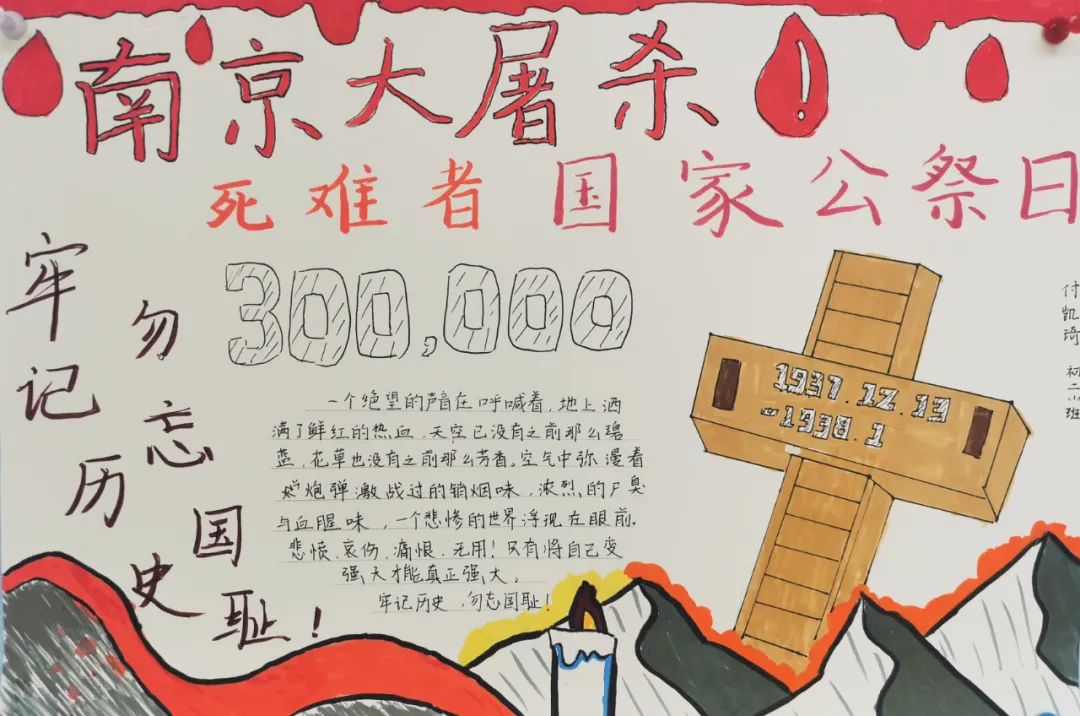 南京大屠杀!
死难者国家公祭日
牢记历史
勿忘国耻!
300,000
一个绝望的声音在呼喊着,地上洒
满了鲜红的热血,天空已没有之前那么碧
蓝,花草也没有之前那么芳香。空气中弥漫着
炮弹激战过的销烟味,浓烈的尸臭
与血腥味,一个悲惨的世界浮现在眼前。
悲愤、哀伤,痛恨,无用!只有将自己变
强大才能真正强大。
牢记历史,勿忘国耻!
1937.12.13
付凯琦
二班